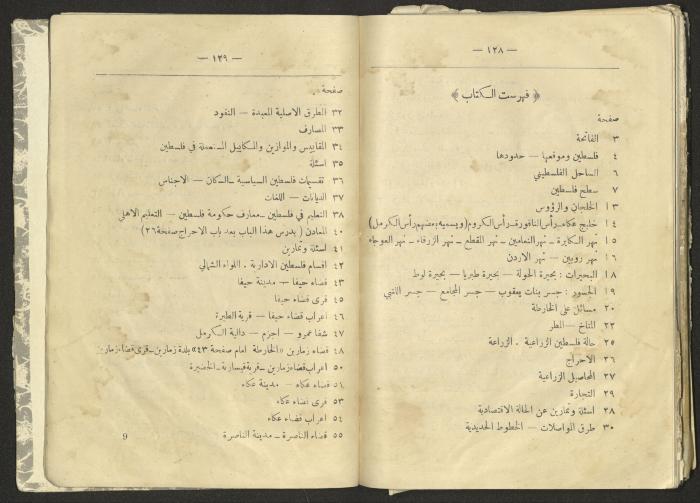 — ١٢٨ —
﴿ فهرست الكتاب ﴾
صفحة
٣ الفاتحة
٤ فلسطين وموقعها — حدودها
٦ الساحل الفلسطيني
٧ سطح فلسطين
١٣ الخلجان والرؤوس
١٤ خليج عكاء ـ رأس الناقورة ـ رأس الكروم (ويسميه بعضهم رأس الكرمل)
١٥ نهر الكابرة — نهر النعامين — نهر المقطع — نهر الزرقاء — نهر العوجاء
١٦ نهر روبين — نهر الاردن
١٨ البحيرات : بحيرة الحولة — بحيرة طبريا — بحيرة لوط
١٩ الجسور : جسر بنات يعقوب — جسر المجامع — جسر اللنبي
٢٠ مسائل على الخارطة
٢٢ المناخ — المطر
٢٥ حالة فلسطين الزراعية . الزراعة
٢٦ الاحراج
٢٧ المحاصيل الزراعية
٢٩ التجارة
٢٨ اسئلة وتمارين عن الحالة الاقتصادية
٣٠ طرق المواصلات — الخطوط الحديدية
— ١٢٩ —
صفحة
٣٢ الطرق الاصلية المعبدة — النقود
٣٣ المصارف
٣٤ المقاييس والموازين والمكاييل المستعملة في فلسطين
٣٥ اسئلة
٣٦ تقسيمات فلسطين السياسية ـ السكان — الاجناس
٣٧ الديانات — اللغات
٣٨ التعليم في فلسطين ـ معارف حكومة فلسطين — التعليم الاهلي
٤٠ المعادن ( يدرس هذا الباب بعد باب الاحراج صفحة ٢٦)
٤١ اسئلة وتمارين
٤٢ اقسام فلسطين الادارية . اللواء الشمالي
٤٣ قضاء حيفا — مدينة حيفا
٤٥ قرى قضاء حيفا
٤٦ اعراب قضاء حيفا — قرية الطيرة
٤٧ شفا عمرو — اجزم — دالية الكرمل
٤٨ قضاء زمارين «الخارطة امام صفحة ٤٣» بلدة زمارين ـ قرى قضاء زمارين
٥٠ اعراب قضاء زمارين ـ قرية قيسارية ـ الخضيرة
٥١ قضاء عكاء — مدينة عكاء
٥٣ قرى قضاء عكاء
٥٤ اعراب قضاء عكاء
٥٥ قضاء الناصرة — مدينة الناصرة
9